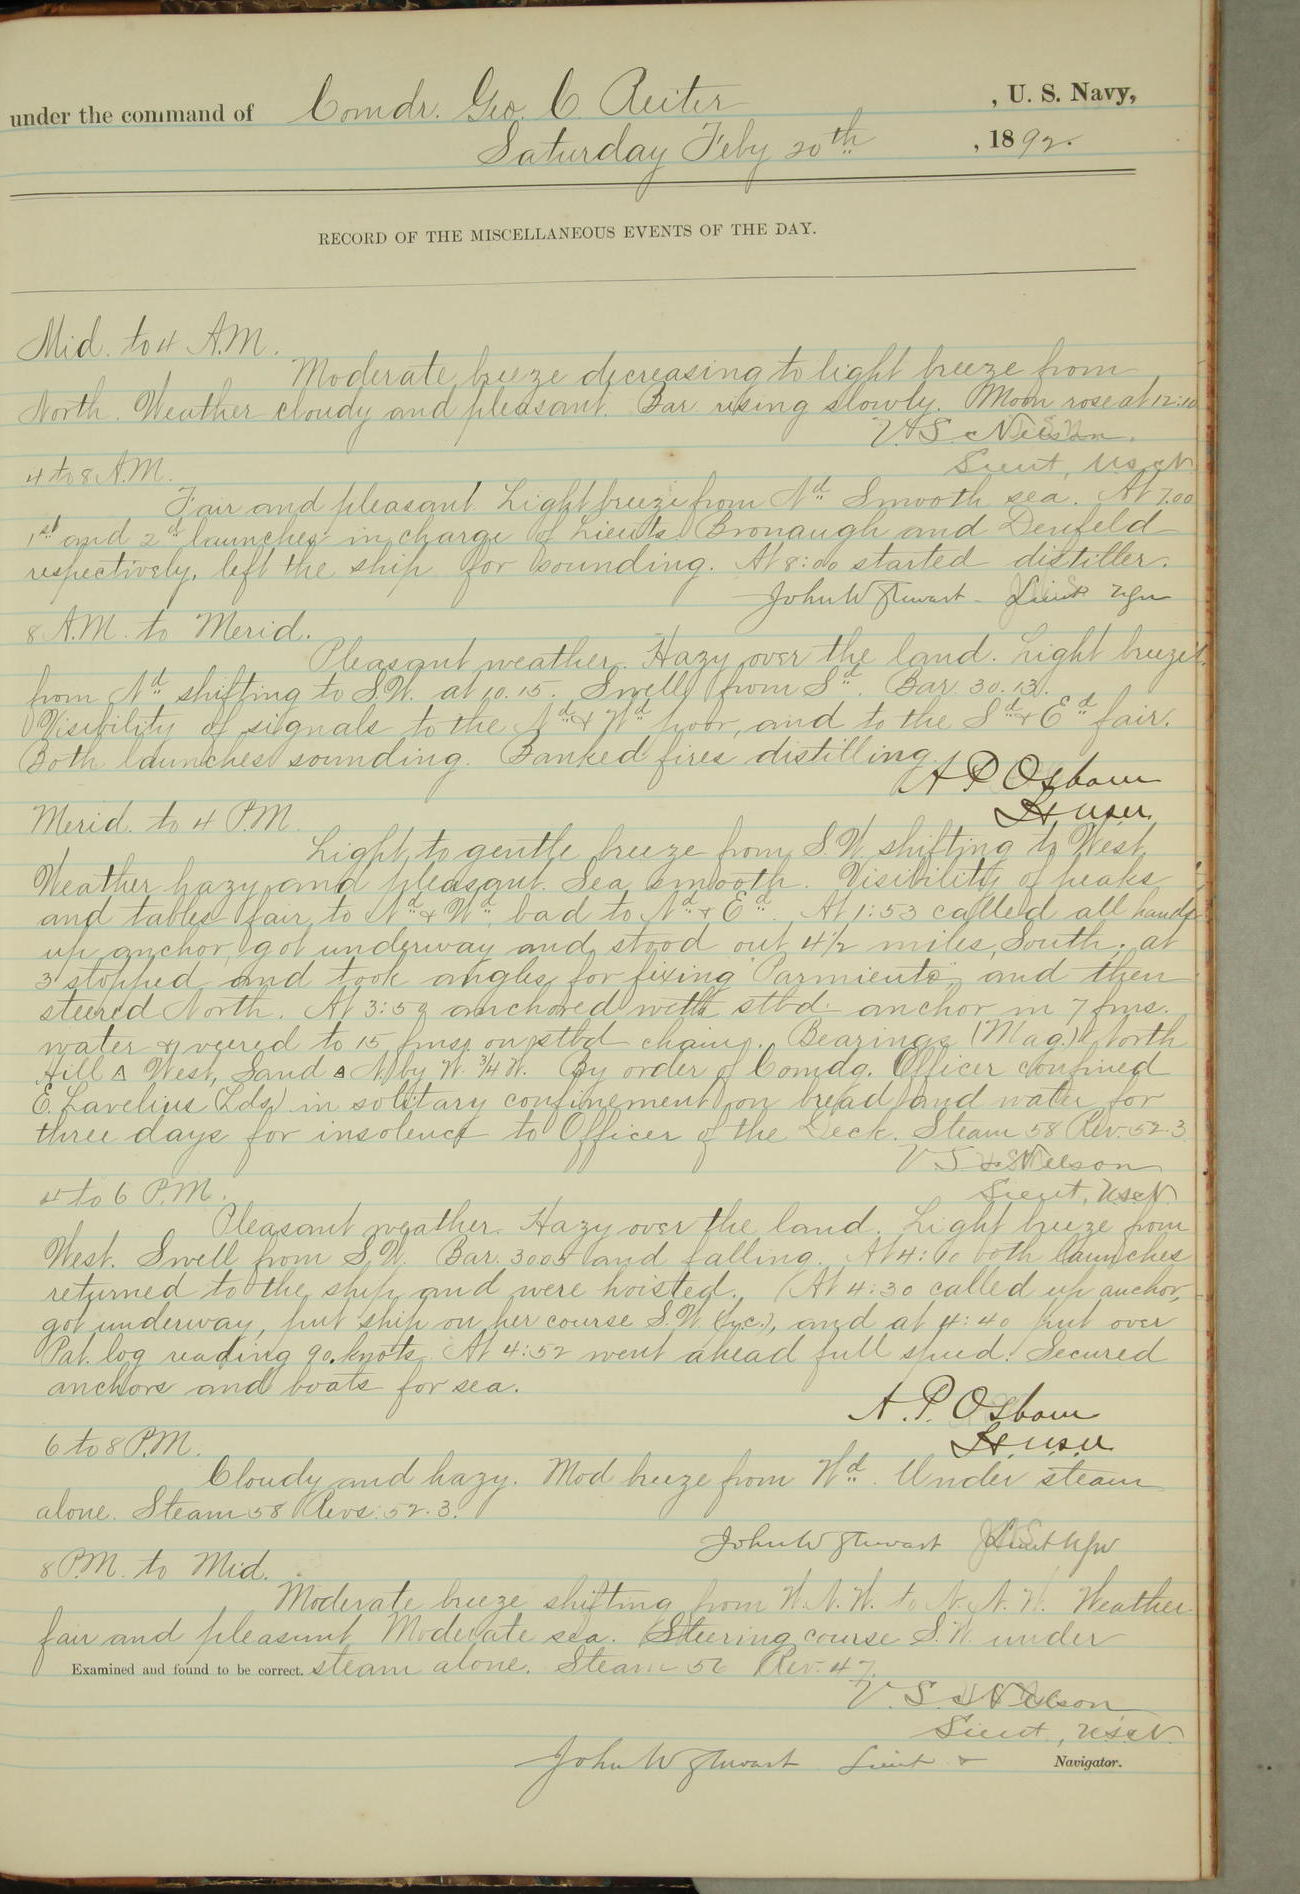 under the command of Comdr. Geo. C. Reiter , U. S. Navy,
Saturday Feby 20th , 1892.
RECORD OF THE MISCELLANEOUS EVENTS OF THE DAY.
Mid. to 4 A.M.
Moderate breeze decreasing to light breeze from
North. Weather cloudy and pleasant. Bar. rising slowly. Moon rose at 12:10
V. S. Nelson.
Lieut, U.S.N.
4 to 8 A.M.
Fair and pleasant. Light breeze from Nd. Smooth sea. At 7.00
1st and 2d launches in charge of Lieuts Bronaugh and Denfeld
respectively, left the ship for sounding. At 8:00 started distiller.
John W Stewart - Lieut USN
8 A.M. to Merid.
Pleasant weather. Hazy over the land. Light breeze
from Nd shifting to S.W. at 10.15. Swell from Sd. Bar. 30.13.
Visibility of signals to the Nd & Wd poor, and to the Sd & Ed fair.
Both launches sounding. Banked fires distilling.
A P Osborn
Lt. U.S.N.
Merid. to 4 P.M.
Light to gentle breeze from S.W. shifting to West.
Weather hazy and pleasant. Sea smooth. Visibility of peaks
and tables fair to Nd & Wd bad to Nd & Ed. At 1:53 called all hands
up anchor, got underway and stood out 4½ miles, South; at
3 stopped and took angles for fixing "Parmiento", and then
steered North. At 3:59 anchored with stbd. anchor in 7 fms.
water & veered to 15 fms. on stbd chain. Bearings (Mag.) North
Hill △ West, Sand △ N by W. ¾ W. By order of Comdg. Officer confined
E. Lavelius (Lds) in solitary confinement on bread and water for
three days for insolence to Officer of the Deck. Steam 58 Rev. 52.3
V. S. Nelson
Lieut, U.S.N.
4 to 6 P.M.
Pleasant weather. Hazy over the land. Light breeze from
West. Swell from S.W. Bar. 30.05 and falling. At 4:10 both launches
returned to the ship and were hoisted. At 4:30 called up anchor,
got underway, put ship on her course S.W. (p.c.), and at 4:40 put over
Pat. log reading 90. knots. At 4:52 went ahead full speed. Secured
anchors and boats for sea.
A. P. Osborn
Lt. U.S.N.
6 to 8 P.M.
Cloudy and hazy. Mod breeze from Wd. Under steam
alone. Steam 58 Revs. 52.3.
John W Stewart Lieut USN
8 P.M. to Mid.
Moderate breeze shifting from W.N.W. to N.N.W. Weather
fair and pleasant. Moderate sea. Steering course S.W. under
Examined and found to be correct. steam alone. Steam Rev. 47.
V. S. Nelson
Lieut, U.S.N.
John W Stewart Lieut & Navigator.